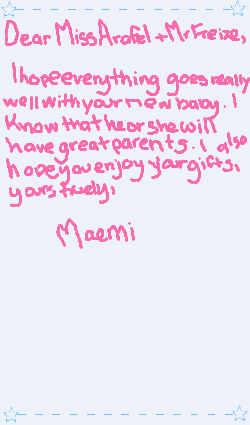 Dear Miss Arafel + Mr Freize,
I hope everything goes really
well with your new baby. I
know that he or she will
have great parents. I also
hope you enjoy your gifts,
yours truely,
Maemi